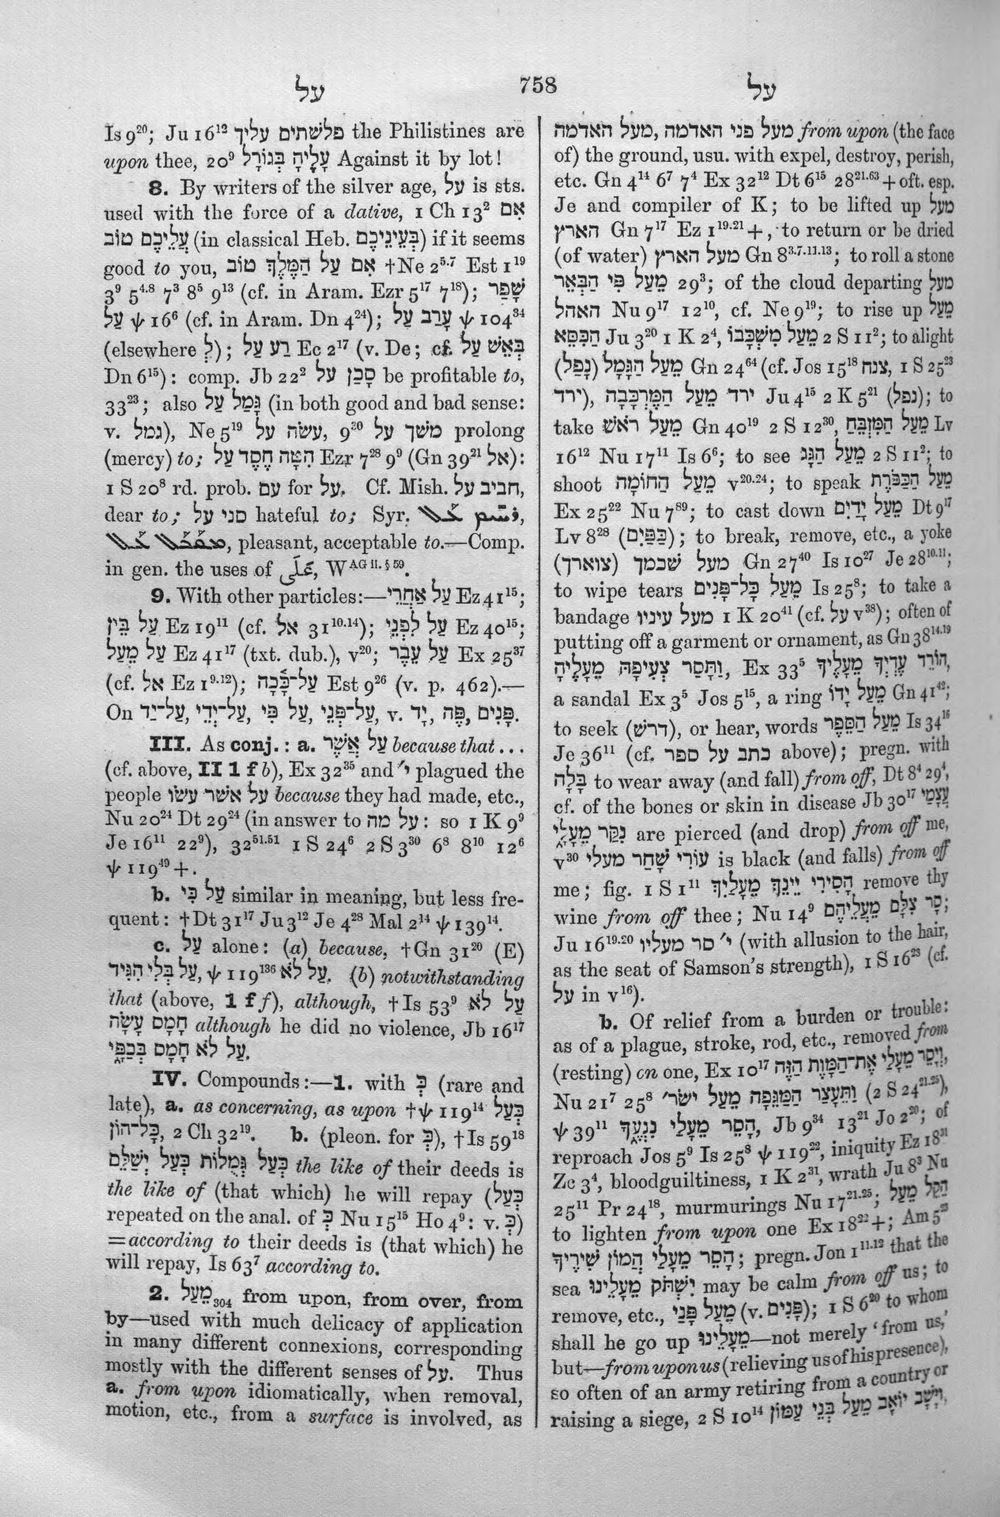 על 758 על
Is 9²⁰; Ju 16¹² פלשתים עליך the Philistines are
upon thee, 20⁹ עָלֶיהָ בְּגוֹרָל Against it by lot!
8. By writers of the silver age, על is sts.
used with the force of a dative, 1 Ch 13² אִם
עֲלֵיכֶם טוֹב (in classical Heb. בְּעֵינֵיכֶם) if it seems
good to you, אִם עַל הַמֶּלֶךְ טוֹב †Ne 2⁵·⁷ Est 1¹⁹
3⁹ 5⁴·⁸ 7³ 8⁵ 9¹³ (cf. in Aram. Ezr 5¹⁷ 7¹⁸); שָׁפַר
עַל ψ 16⁶ (cf. in Aram. Dn 4²⁴); עָרַב עַל ψ 104³⁴
(elsewhere לְ); רַע עַל Ec 2¹⁷ (v. De; cf. בְּאֵשׁ עַל
Dn 6¹⁵): comp. Jb 22² סָכַן עַל be profitable to,
33²³; also גָּמַל עַל (in both good and bad sense:
v. גמל), Ne 5¹⁹ עשׂה על, 9³⁰ משׁך על prolong
(mercy) to; הִטָּה חֶסֶד עַל Ezr 7²⁸ 9⁹ (Gn 39²¹ אל):
1 S 20⁸ rd. prob. עם for על. Cf. Mish. חביב על,
dear to; סני על hateful to; Syr.
, pleasant, acceptable to.—Comp.
in gen. the uses of عَلَى, W^AG II. § 59.
9. With other particles:—עַל אַחֲרֵי Ez 41¹⁵;
עַל בֵּין Ez 19¹¹ (cf. אל 31¹⁰·¹⁴); עַל לִפְנֵי Ez 40¹⁵;
עַל מֵעַל Ez 41¹⁷ (txt. dub.), v²⁰; עַל עֵבֶר Ex 25³⁷
(cf. אל Ez 1⁹·¹²); עַל־כָּכָה Est 9²⁶ (v. p. 462).—
On עַל־יַד, עַל־יְדֵי, עַל פִּי, עַל־פְּנֵי, v. יָד, פֶּה, פָּנִים.
III. As conj.: a. עַל אֲשֶׁר because that ...
(cf. above, II 1 f b), Ex 32³⁵ and י׳ plagued the
people על אשר עשׂו because they had made, etc.,
Nu 20²⁴ Dt 29²⁴ (in answer to על מה: so 1 K 9⁹
Je 16¹¹ 22⁹), 32⁵¹·⁵¹ 1 S 24⁶ 2 S 3³⁰ 6⁸ 8¹⁰ 12⁶
ψ 119⁴⁹ +.
b. עַל כִּי similar in meaning, but less fre-
quent: †Dt 31¹⁷ Ju 3¹² Je 4²⁸ Mal 2¹⁴ ψ 139¹⁴.
c. עַל alone: (a) because, †Gn 31²⁰ (E)
עַל בְּלִי הִגִּיד, ψ 119¹³⁶ עַל לֹא. (b) notwithstanding
that (above, 1 f f), although, †Is 53⁹ עַל לֹא
חָמָס עָשָׂה although he did no violence, Jb 16¹⁷
עַל לֹא חָמָס בְּכַפָּי.
IV. Compounds:—1. with כְּ (rare and
late), a. as concerning, as upon †ψ 119¹⁴ כְּעַל
כָּל־הוֹן, 2 Ch 32¹⁹. b. (pleon. for כְּ), †Is 59¹⁸
כְּעַל גְּמֻלוֹת כְּעַל יְשַׁלֵּם the like of their deeds is
the like of (that which) he will repay (כְּעַל
repeated on the anal. of כְּ Nu 15¹⁵ Ho 4⁹: v. כְּ)
=according to their deeds is (that which) he
will repay, Is 63⁷ according to.
2. מֵעַל₃₀₄ from upon, from over, from
by—used with much delicacy of application
in many different connexions, corresponding
mostly with the different senses of עַל. Thus
a. from upon idiomatically, when removal,
motion, etc., from a surface is involved, as
מעל פני האדמה, מעל האדמה from upon (the face
of) the ground, usu. with expel, destroy, perish,
etc. Gn 4¹⁴ 6⁷ 7⁴ Ex 32¹² Dt 6¹⁵ 28²¹·⁶³ + oft. esp.
Je and compiler of K; to be lifted up מעל
הארץ Gn 7¹⁷ Ez 1¹⁹·²¹ +, to return or be dried
(of water) מעל הארץ Gn 8³·⁷·¹¹·¹³; to roll a stone
מֵעַל פִּי הַבְּאֵר 29³; of the cloud departing מעל
האהל Nu 9¹⁷ 12¹⁰, cf. Ne 9¹⁹; to rise up מֵעַל
הַכִּסֵּא Ju 3²⁰ 1 K 2⁴, מֵעַל מִשְׁכָּבוֹ 2 S 11²; to alight
(נָפַל) מֵעַל הַגָּמָל Gn 24⁶⁴ (cf. Jos 15¹⁸ צנח, 1 S 25²³
ירד), ירד מֵעַל הַמֶּרְכָּבָה Ju 4¹⁵ 2 K 5²¹ (נפל); to
take מֵעַל רֹאשׁ Gn 40¹⁹ 2 S 12³⁰, מֵעַל הַמִּזְבֵּחַ Lv
16¹² Nu 17¹¹ Is 6⁶; to see מֵעַל הַגָּג 2 S 11²; to
shoot מֵעַל הַחוֹמָה v²⁰·²⁴; to speak מֵעַל הַכַּפֹּרֶת
Ex 25²² Nu 7⁸⁹; to cast down מֵעַל יָדַיִם Dt 9¹⁷
Lv 8²⁸ (כַּפַּיִם); to break, remove, etc., a yoke
(צוארך) מעל שכמך Gn 27⁴⁰ Is 10²⁷ Je 28¹⁰·¹¹;
to wipe tears מֵעַל כָּל־פָּנִים Is 25⁸; to take a
bandage מעל עיניו 1 K 20⁴¹ (cf. על v³⁸); often of
putting off a garment or ornament, as Gn 38¹⁴·¹⁹
וַתָּסַר צְעִיפָהּ מֵעָלֶיהָ, Ex 33⁵ הוֹרֵד עֶדְיְךָ מֵעָלֶיךָ,
a sandal Ex 3⁵ Jos 5¹⁵, a ring מֵעַל יָדוֹ Gn 41⁴²;
to seek (דרשׁ), or hear, words מֵעַל הַסֵּפֶר Is 34¹⁶
Je 36¹¹ (cf. כתב על ספר above); pregn. with
בָּלָה to wear away (and fall) from off, Dt 8⁴ 29⁴,
cf. of the bones or skin in disease Jb 30¹⁷ עֲצָמַי
נִקַּר מֵעָלָי are pierced (and drop) from off me,
v³⁰ עוֹרִי שָׁחַר מעלי is black (and falls) from off
me; fig. 1 S 1¹¹ הָסִירִי יֵינֵךְ מֵעָלָיִךְ remove thy
wine from off thee; Nu 14⁹ סָר צִלָּם מֵעֲלֵיהֶם;
Ju 16¹⁹·²⁰ י׳ סר מעליו (with allusion to the hair,
as the seat of Samson's strength), 1 S 16²³ (cf.
על in v¹⁶).
b. Of relief from a burden or trouble:
as of a plague, stroke, rod, etc., removed from
(resting) on one, Ex 10¹⁷ וְיָסֵר מֵעָלַי אֶת־הַמָּוֶת הַזֶּה,
Nu 21⁷ 25⁸ וַתֵּעָצַר הַמַּגֵּפָה מֵעַל ישׂר׳ (2 S 24²¹·²⁵),
ψ 39¹¹ הָסֵר מֵעָלַי נִגְעֶךָ, Jb 9³⁴ 13²¹ Jo 2²⁰; of
reproach Jos 5⁹ Is 25⁸ ψ 119²², iniquity Ez 18³¹
Zc 3⁴, bloodguiltiness, 1 K 2³¹, wrath Ju 8³ Nu
25¹¹ Pr 24¹⁸, murmurings Nu 17²¹·²⁵; הָקֵל מֵעַל
to lighten from upon one Ex 18²² +; Am 5²³
הָסֵר מֵעָלַי הֲמוֹן שִׁירֶיךָ; pregn. Jon 1¹¹·¹² that the
sea יִשְׁתֹּק מֵעָלֵינוּ may be calm from off us; to
remove, etc., מֵעַל פָּנַי (v. פָּנִים); 1 S 6²⁰ to whom
shall he go up מֵעָלֵינוּ—not merely 'from us,'
but—from upon us (relieving us of his presence),
so often of an army retiring from a country or
raising a siege, 2 S 10¹⁴ וַיָּשָׁב יוֹאָב מֵעַל בְּנֵי עַמּוֹן